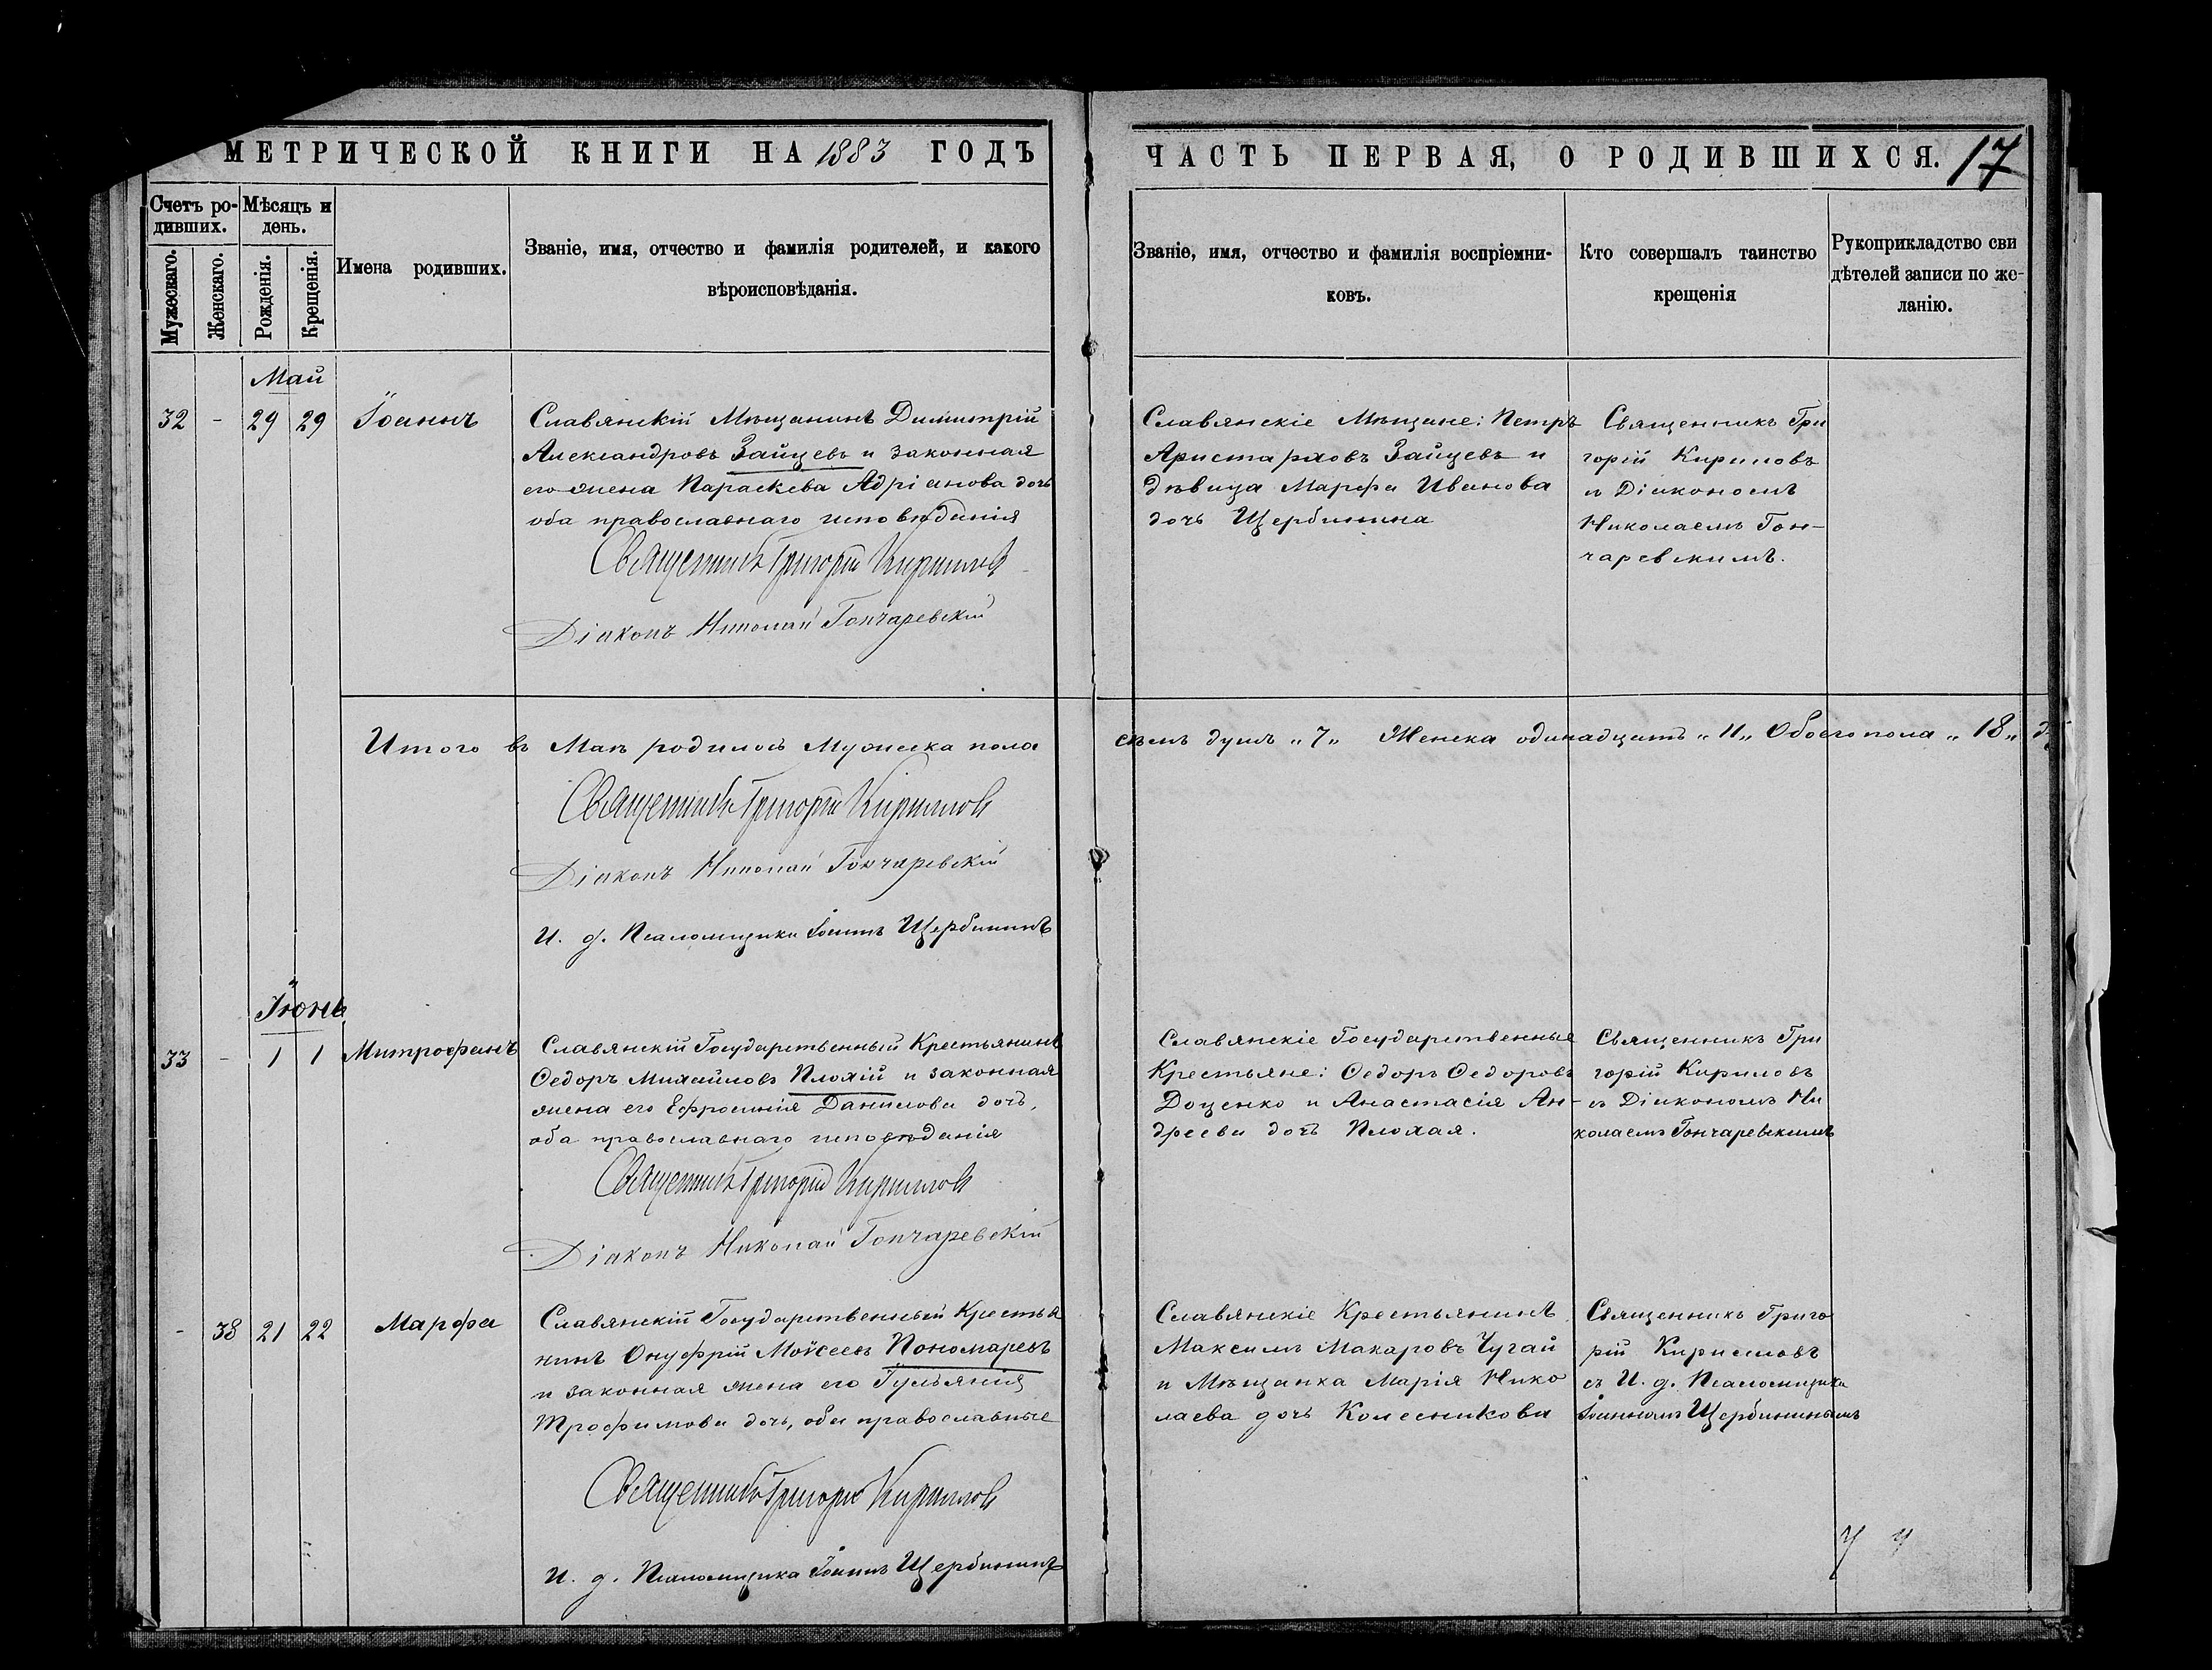 МЕТРИЧЕСКОЙ КНИГИ НА 1883 ГОДЪ
Счетъ ро-
дившихъ.
Мѣсяцъ и
день.
Мужескаго.
Женскаго.
Рожденія.
Крещенія.
Имена родившихъ.
Званіе, имя, отчество и фамилія родителей, и какого
вѣроисповѣданія.
Май
32 - 29 29 Іоаннъ
Славянскій Мѣщанинъ Димитрій
Александровъ Зайцевъ и законная
его жена Параскева Адріанова дочь
оба православнаго исповѣданія
Священникъ Григорій Кириллов
Діаконъ Николай Гончаревскій
Итого въ Маѣ родилось Мужеска пола
Священникъ Григорій Кириллов
Діаконъ Николай Гончаревскій
И. д. Псаломщика Іоаннъ Щербининъ
Іюнь
33 - 1 1 Митрофанъ
Славянскій Государственный Крестьянинъ
Ѳедоръ Михайловъ Плохій и законная
жена его Ефросинія Данилова дочь,
оба православнаго исповѣданія
Священникъ Григорій Кириллов
Діаконъ Николай Гончаревскій
- 38 21 22 Марфа
Славянскій Государственный Крестья
нинъ Онуфрій Моѵсеевъ Пономаревъ
и законная жена его Іуліанія
Трофимова дочь, оба православные
Священникъ Григорій Кириллов
И. д. Псаломщика Іоаннъ Щербининъ
ЧАСТЬ ПЕРВАЯ, О РОДИВШИХСЯ. 17
Званіе, имя, отчество и фамилія воспріемни-
ковъ.
Кто совершалъ таинство
крещенія
Рукоприкладство сви
дѣтелей записи по же-
ланію.
Славянскіе Мѣщане: Петръ
Аристарховъ Зайцевъ и
дѣвица Марфа Иванова
дочь Щербинина
Священникъ Гри
горій Кириловъ
съ Діакономъ
Николаемъ Гон-
чаревскимъ.
семъ душъ „7„ Женска одинадцать „11„ Обоего пола „18„ д
Славянскіе Государственные
Крестьяне: Ѳедоръ Ѳедоровъ
Доценко и Анастасія Ан-
дреева дочь Плохая.
Священникъ Гри
горій Кириловъ
съ Діакономъ Ни
колаемъ Гончаревскимъ
Славянскіе Крестьянинъ
Максимъ Макаровъ Чугай
и Мѣщанка Марія Нико
лаева дочь Колесникова
Священникъ Григо
рій Кирилловъ
съ И. д. Псаломщика
Іоанномъ Щербининымъ